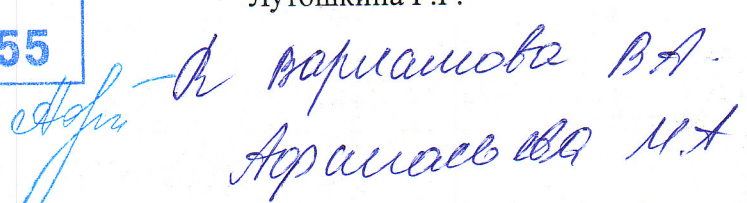 Лутошкина Г.Г.
55
Варламова В.А.
Афанасьева М.А